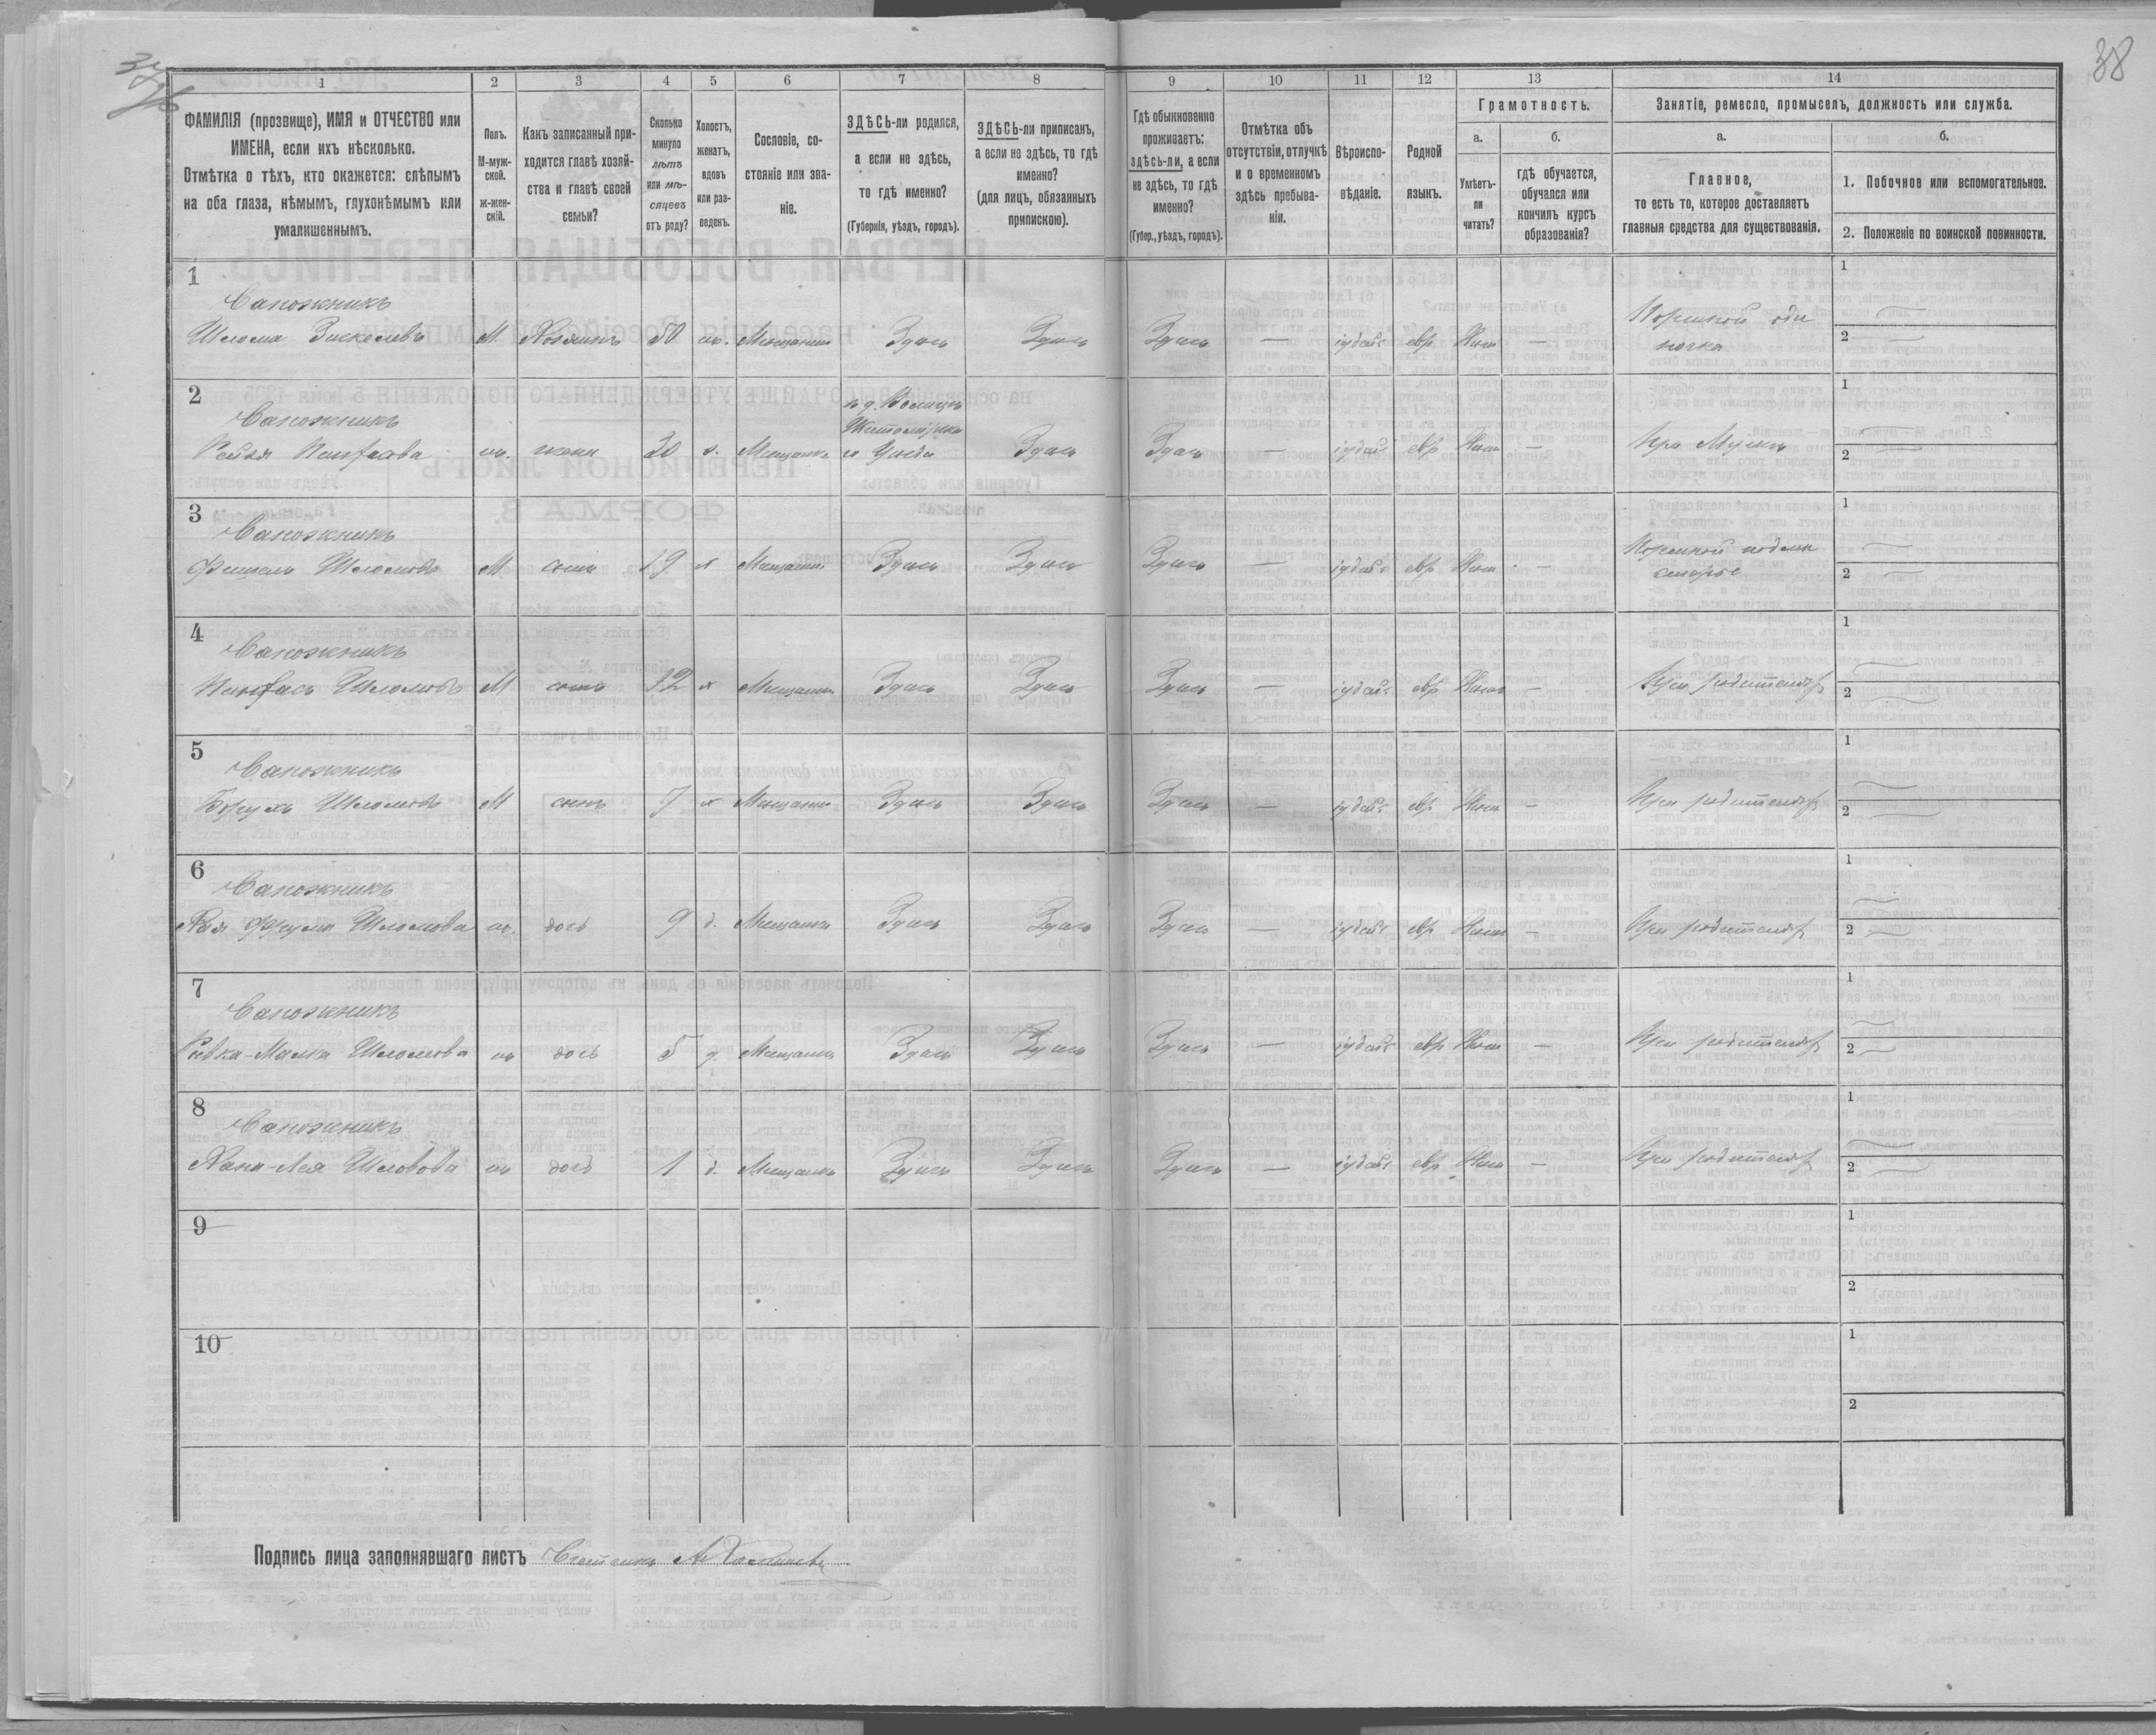 38
1
2
3
4
5
6
7
8
9
10
11
12
13
14
ФАМИЛІЯ (прозвище), ИМЯ и ОТЧЕСТВО или
ИМЕНА, если ихъ нѣсколько.
Отмѣтка о тѣхъ, кто окажется: слѣпымъ
на оба глаза, нѣмымъ, глухонѣмымъ или
умалишеннымъ.
Полъ.
М-муж-
ской.
ж-жен-
скій.
Какъ записанный при-
ходится главѣ хозяй-
ства и главѣ своей
семьи?
Сколько
минуло
лѣтъ
или мѣ-
сяцевъ
отъ роду?
Холостъ,
женатъ,
вдовъ
или раз-
веденъ.
Сословіе, со-
стояніе или зва-
ніе.
ЗДѢСЬ-ли родился,
а если не здѣсь,
то гдѣ именно?
(Губернія, уѣздъ, городъ).
ЗДѢСЬ-ли приписанъ,
а если не здѣсь, то гдѣ
именно?
(для лицъ, обязанныхъ
припискою).
Гдѣ обыкновенно
проживаетъ:
здѣсь-ли, а если
не здѣсь, то гдѣ
именно?
(Губер., уѣздъ, городъ).
Отмѣтка объ
отсутствіи, отлучкѣ
и о временномъ
здѣсь пребыва-
ніи.
Вѣроиспо-
вѣданіе.
Родной
языкъ.
Грамотность.
а.
б.
Умѣетъ-
ли
читать?
гдѣ обучается,
обучался или
кончилъ курсъ
образованія?
Занятіе, ремесло, промыселъ, должность или служба.
а.
б.
Главное,
то есть то, которое доставляетъ
главныя средства для существованія.
1. Побочное или вспомогательное.
2. Положеніе по воинской повинности.
1
Сапожникъ
Шлома М. Хозяинъ 50 ж. Мещанин Здесь Здесь Здесь — іудейс евр Нет —
Портной оди
ночка
1
2
2
Сапожникъ
ж. жена 30 з. Мещанка
Житомірска
го Уезда
Здесь Здесь — іудейс евр Нет — При Мужъ
1
2
3
Сапожникъ
Фишель Шломовъ М сынъ 19 х Мещанин Здесь Здесь Здесь — іудейс евр Нет —
Портной
1
2
4
Сапожникъ
Пинхасъ Шломовъ М сынъ 12 х Мещанин Здесь Здесь Здесь — іудейс евр Нет — При родителях
1
2
5
Сапожникъ
Борухъ Шломовъ М сынъ 7 х Мещанин Здесь Здесь Здесь — іудейс евр Нет — При родителях
1
2
6
Сапожникъ
Хая Фрума Шломова ж. дочь 9 д. Мещанка Здесь Здесь Здесь — іудейс евр Нет — При родителях
1
2
7
Сапожникъ
Ривка-Малка Шломова ж дочь 5 д. Мещанка Здесь Здесь Здесь — іудейс евр Нет — При родителях
1
2
8
Сапожникъ
Хана-Лея ж дочь 1 д. Мещанка Здесь Здесь Здесь — іудейс евр Нет — При родителях
1
2
9
1
2
10
1
2
Подпись лица заполнявшаго листъ Счетчикъ